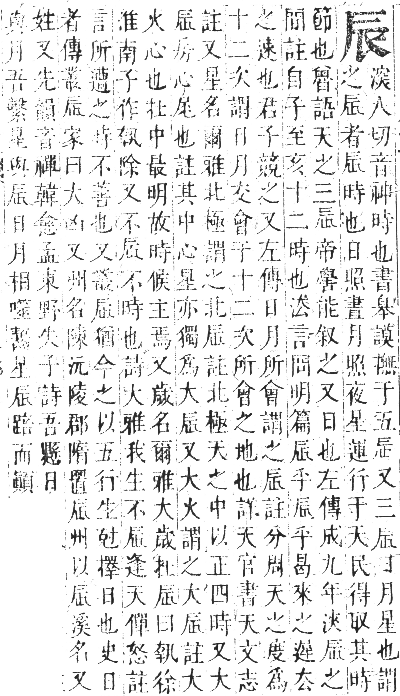 辰
浹人切音神時也書皋謨撫于五辰又三辰日月星也謂
之辰者辰時也日照晝月照夜星運行于天民得取其時
節也魯語天之三辰帝嚳能敘之又日也左傳成九年浹辰之
間註自子至亥十二時也法言問明篇辰乎辰乎曷來之遲去
之速也君子競之又左傳日月所會謂之辰註分周天之度為
十二次謂日月交會于十二次所會之地也詳天官書天文志
註又星名爾雅北極謂之北辰註北極天之中以正四時又大
辰房心尾也註其中心星亦獨為大辰又大火謂之大辰註大
火心也在中最明故時候主焉又歲名爾雅大歲在辰曰執徐
淮南子作執除又不辰不時也詩大雅我生不辰逢天僤怒註
言所遭之時不善也又叢辰猶今之以五行生尅擇日也史日
者傳叢辰家曰大凶又州名陳沅陵郡隋置辰州以辰溪名又
姓又先韻音禪韓愈孟東野失子詩吾懸日
與月吾繫星與辰日月相噬齧星辰踣而顛